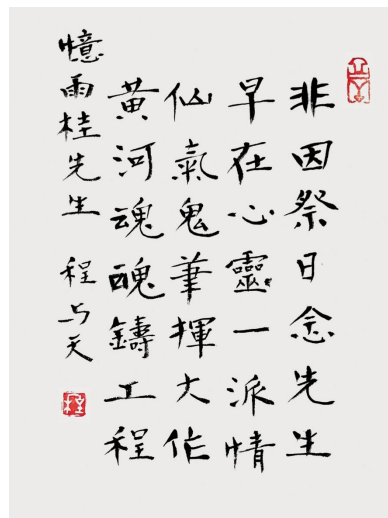 非因祭日念先生
早在心靈一派情
仙氣鬼筆揮大作
黃河魂魄鑄工程
憶雨桂先生 程与天